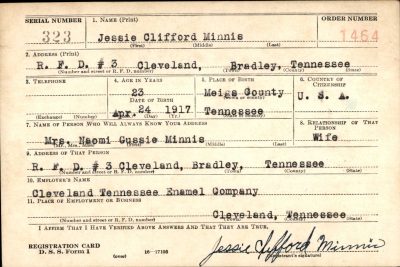 SERIAL NUMBER 1. NAME (Print) ORDER NUMBER
323 Jessie Clifford Minnis 1464
(First) (Middle) (Last)
2. ADDRESS (Print)
R. F. D. # 3 Cleveland, Bradley, Tennessee
(Number and street or R. F. D. number) (Town) (County) (State)
3. TELEPHONE 4. AGE IN YEARS 5. PLACE OF BIRTH 6. COUNTRY OF CITIZENSHIP
23 Meigs County U. S. A.
DATE OF BIRTH (Town or county)
Apr. 24 1917 Tennessee
(Exchange) (Number) (Mo.) (Day) (Yr.) (State or country)
7. NAME OF PERSON WHO WILL ALWAYS KNOW YOUR ADDRESS 8. RELATIONSHIP OF THAT PERSON
Mrs. Naomi Gussie Minnis Wife
(Mr., Mrs., Miss) (First) (Middle) (Last)
9. ADDRESS OF THAT PERSON
R. F. D. # 3 Cleveland, Bradley, Tennessee
(Number and street or R. F. D. number) (Town) (County) (State)
10. EMPLOYER'S NAME
Cleveland Tennessee Enamel Company
11. PLACE OF EMPLOYMENT OR BUSINESS
Cleveland, Tennessee
(Number and street or R. F. D. number) (Town) (County) (State)
I AFFIRM THAT I HAVE VERIFIED ABOVE ANSWERS AND THAT THEY ARE TRUE.
REGISTRATION CARD
D. S. S. Form 1 (over) 16—17105 Jessie Clifford Minnis
(Registrant's signature)